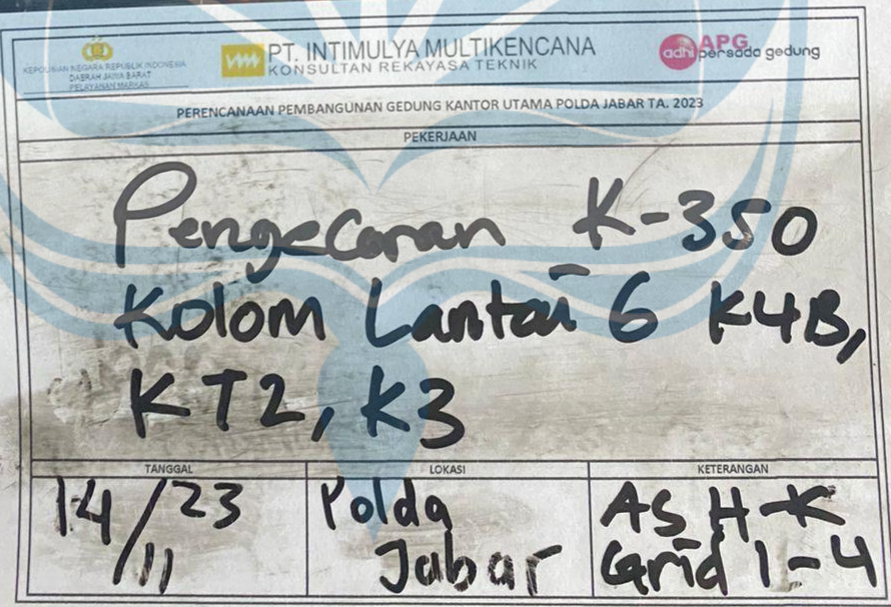 KEPOLISIAN NEGARA REPUBLIK INDONESIA
DAERAH JAWA BARAT
PELAYANAN MARKAS
VMM PT. INTIMULYA MULTIKENCANA
KONSULTAN REKAYASA TEKNIK
adhi APG
persada gedung
PERENCANAAN PEMBANGUNAN GEDUNG KANTOR UTAMA POLDA JABAR TA. 2023
PEKERJAAN
Pengecoran K-350
Kolom Lantai 6 K4B,
KT2, K3
TANGGAL
14/23
/11
LOKASI
Polda
Jabar
KETERANGAN
AS H-K
Grid 1-4